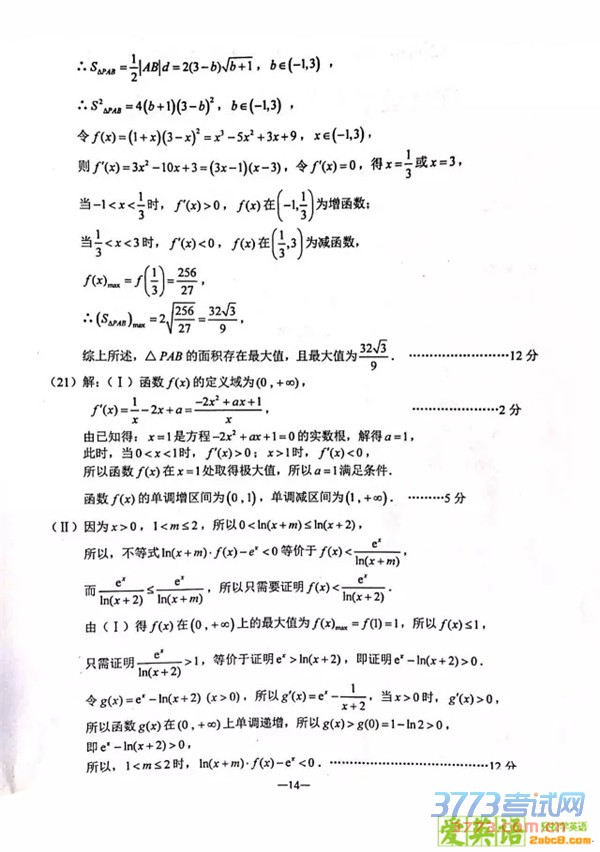 ∴S△PAB = 1/2|AB|d = 2(3−b)√(b+1)，b∈(−1,3)，
∴S²△PAB = 4(b+1)(3−b)²，b∈(−1,3)，
令 f(x) = (1+x)(3−x)² = x³−5x²+3x+9，x∈(−1,3)，
则 f′(x) = 3x²−10x+3 = (3x−1)(x−3)，令 f′(x) = 0，得 x = 1/3 或 x = 3，
当 −1<x<1/3 时，f′(x)>0，f(x) 在 (−1, 1/3) 为增函数；
当 1/3<x<3 时，f′(x)<0，f(x) 在 (1/3, 3) 为减函数，
f(x)max = f(1/3) = 256/27，
∴(S△PAB)max = 2√(256/27) = 32√3/9，
综上所述，△PAB 的面积存在最大值，且最大值为 32√3/9． ……………………12 分
（21）解：（Ⅰ）函数 f(x) 的定义域为 (0，+∞)，
f′(x) = 1/x −2x+a = (−2x²+ax+1)/x， …………………2 分
由已知得：x=1 是方程 −2x²+ax+1=0 的实数根，解得 a=1，
此时，当 0<x<1 时，f′(x)>0；x>1 时，f′(x)<0，
所以函数 f(x) 在 x=1 处取得极大值，所以 a=1 满足条件．
函数 f(x) 的单调增区间为 (0，1)，单调减区间为 (1，+∞)． ………5 分
（Ⅱ）因为 x>0，1<m≤2，所以 0<ln(x+m)≤ln(x+2)，
所以，不等式 ln(x+m)·f(x)−eˣ<0 等价于 f(x)<eˣ/ln(x+m)，
而 eˣ/ln(x+2) ≤ eˣ/ln(x+m)，所以只需要证明 f(x)<eˣ/ln(x+2)．
由（Ⅰ）得 f(x) 在 (0，+∞) 上的最大值为 f(x)max = f(1) = 1，所以 f(x)≤1，
只需证明 eˣ/ln(x+2) >1，等价于证明 eˣ>ln(x+2)，即证明 eˣ−ln(x+2)>0．
令 g(x) = eˣ−ln(x+2) (x>0)，所以 g′(x) = eˣ−1/(x+2)，当 x>0 时，g′(x)>0，
所以函数 g(x) 在 (0，+∞) 上单调递增，所以 g(x)>g(0)=1−ln2>0，
即 eˣ−ln(x+2)>0，
所以，1<m≤2 时，ln(x+m)·f(x)−eˣ<0．……………………………12 分
—14—
3773考试网
爱英语
2abc8.com